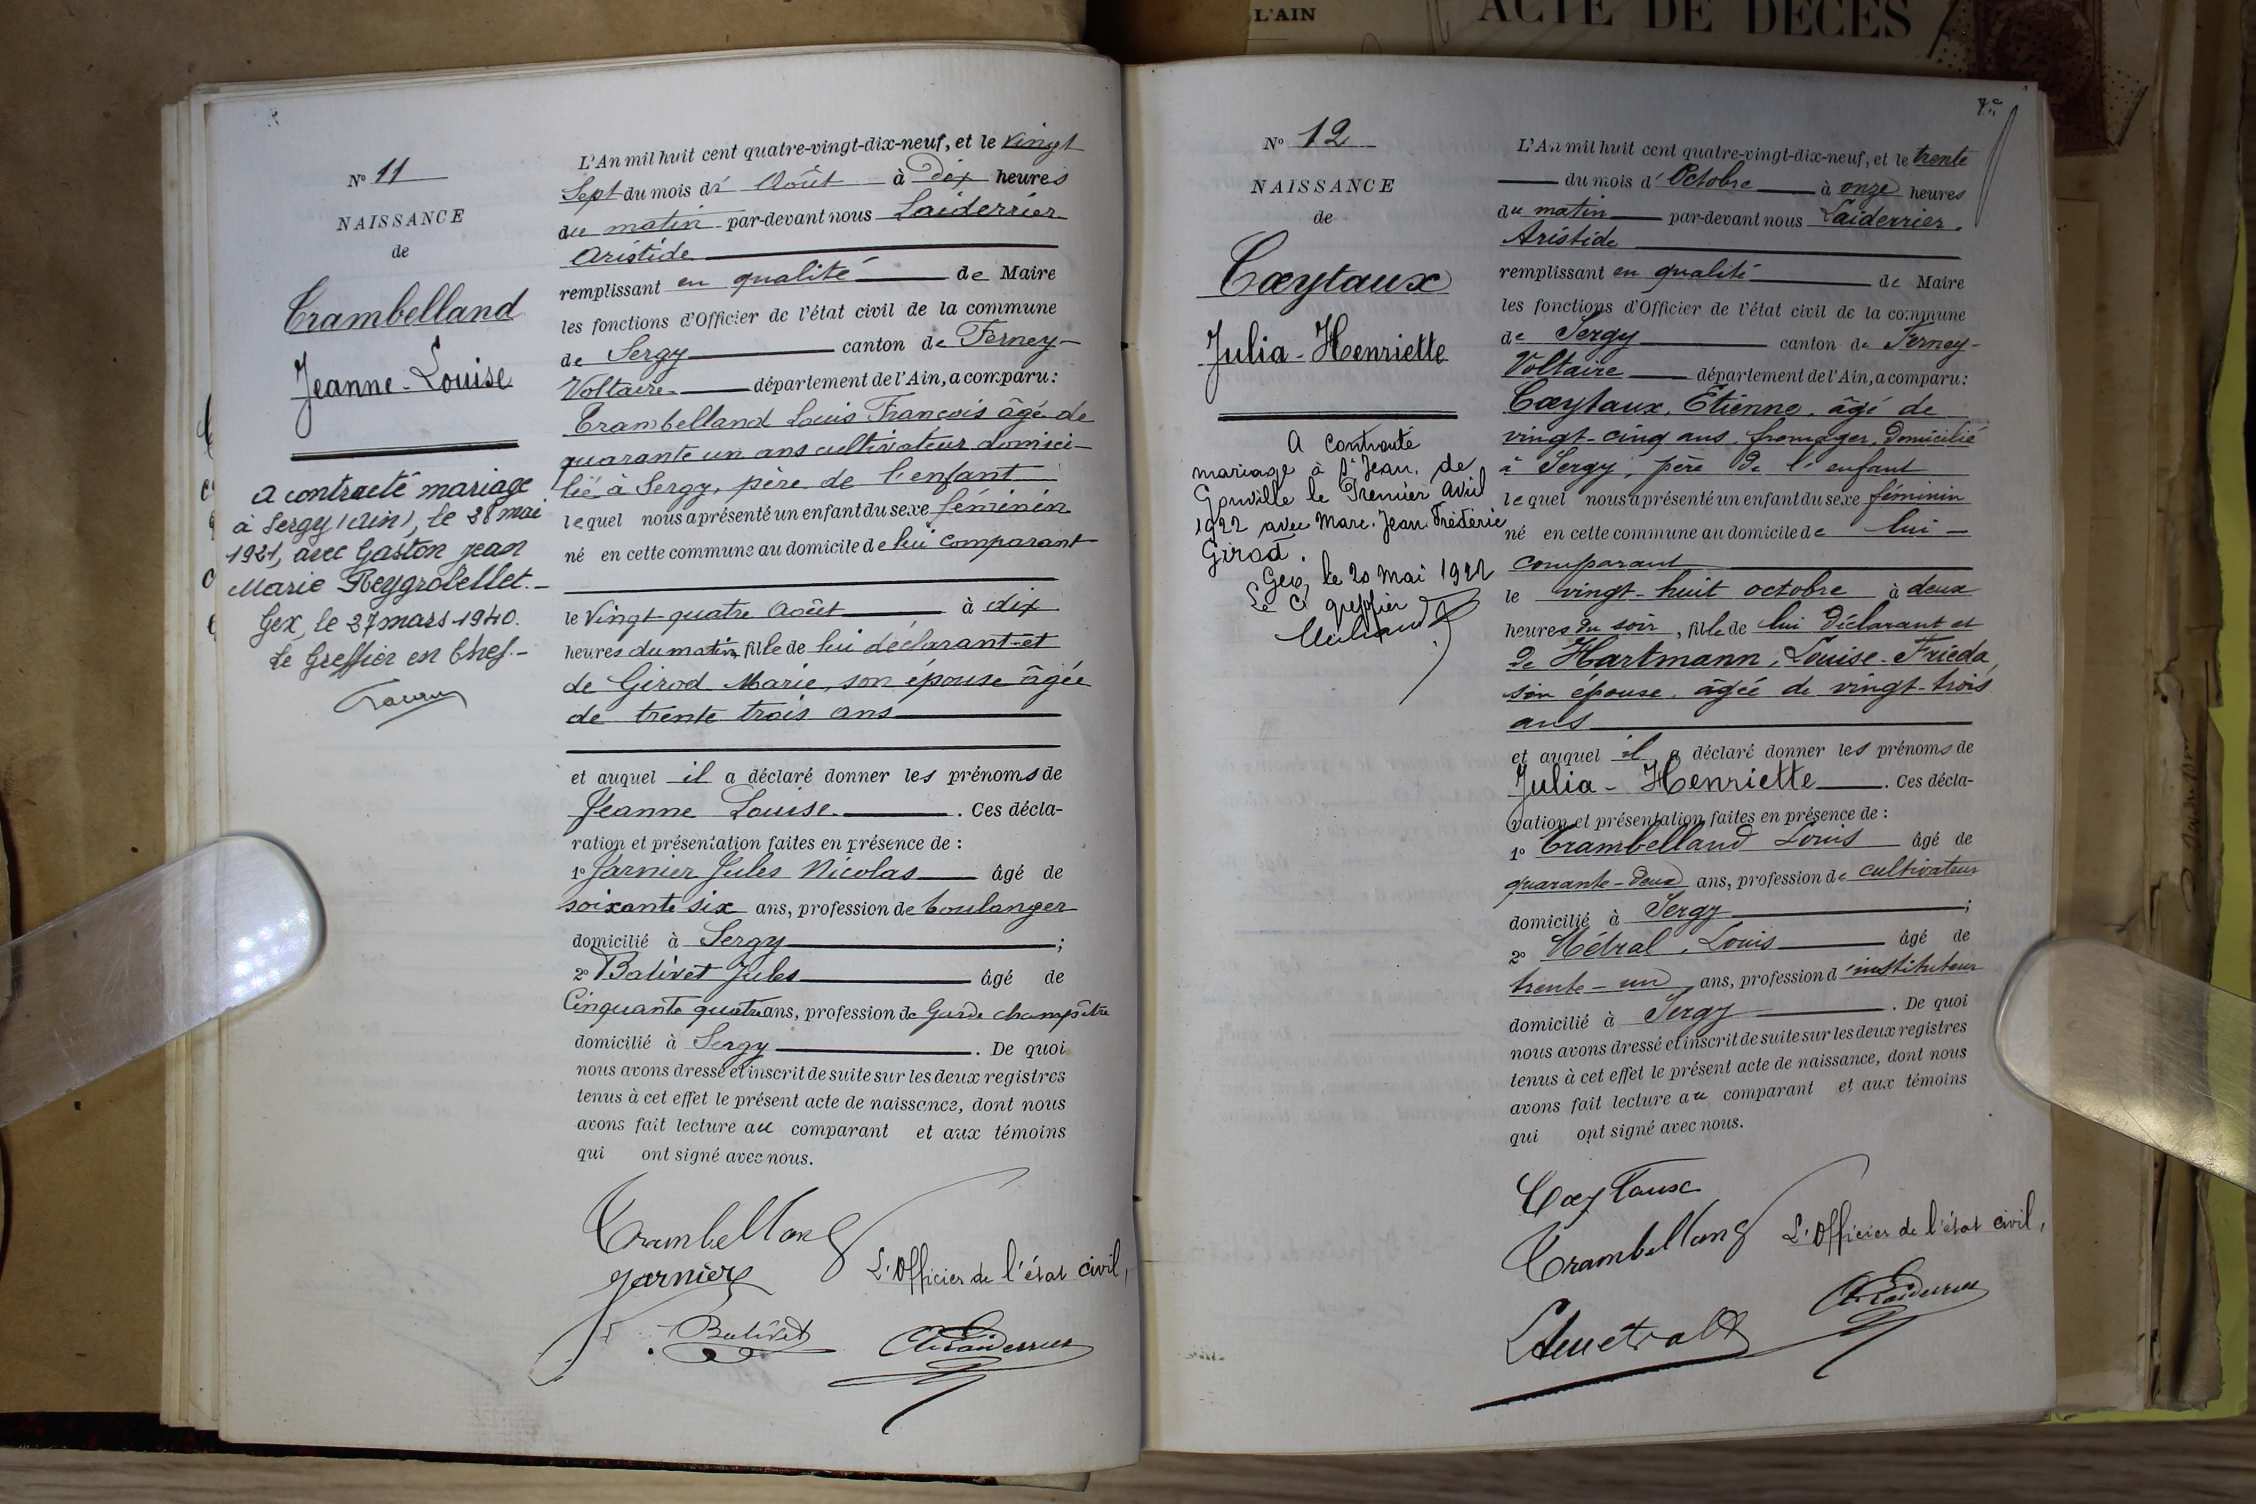 L'AIN
ACTE DE DÉCÈS
N° 11
NAISSANCE
de
Trambelland
Jeanne-Louise
a contracté mariage
à Sergy (Ain), le 28 mai
1921, avec Gaston Jean
Marie Reygrobellet.-
Gex, le 27 mars 1940.
Le Greffier en Chef.-
L'An mil huit cent quatre-vingt-dix-neuf, et le vingt
sept du mois d' Août à dix heures
du matin par-devant nous Laiderrier
Aristide
remplissant en qualité de Maire
les fonctions d'Officier de l'état civil de la commune
de Sergy canton de Ferney-
Voltaire département de l'Ain, a comparu:
Trambelland Louis François âgé de
quarante un ans cultivateur domici-
lié à Sergy, père de l'enfant
lequel nous a présenté un enfant du sexe féminin
né en cette commune au domicile de lui comparant
le Vingt quatre Août à dix
heures du matin, fille de lui déclarant et
de Girod Marie, son épouse âgée
de trente trois ans
et auquel il a déclaré donner les prénoms de
Jeanne Louise. . Ces décla-
ration et présentation faites en présence de :
1° Jarnier Jules Nicolas âgé de
soixante six ans, profession de boulanger
domicilié à Sergy ;
2° Balivet Jules âgé de
Cinquante quatre ans, profession de Garde champêtre
domicilié à Sergy . De quoi
nous avons dressé et inscrit de suite sur les deux registres
tenus à cet effet le présent acte de naissance, dont nous
avons fait lecture au comparant et aux témoins
qui ont signé avec nous.
Trambelland
Jarnier
L'Officier de l'état civil,
Balivet
A. Laiderrier
N° 12
NAISSANCE
de
Cœytaux
Julia-Henriette
A contracté
mariage à St Jean. de
Gonville le Premier avril
1922 avec Marc. Jean Frédéric
Girod.
Gex, le 20 Mai 1922
Le Cs greffier
L'An mil huit cent quatre-vingt-dix-neuf, et le trente
du mois d' Octobre à onze heures
du matin par-devant nous Laiderrier.
Aristide
remplissant en qualité de Maire
les fonctions d'Officier de l'état civil de la commune
de Sergy canton de Ferney-
Voltaire département de l'Ain, a comparu:
Cœytaux, Etienne, âgé de
vingt-cinq ans, fromager, domicilié
à Sergy, père de l'enfant
lequel nous a présenté un enfant du sexe féminin
né en cette commune au domicile de lui-
comparant
le vingt-huit octobre à deux
heures du soir, fille de lui déclarant et
de Hartmann, Louise-Frieda,
son épouse, âgée de vingt-trois
ans
et auquel il a déclaré donner les prénoms de
Julia-Henriette . Ces décla-
ration et présentation faites en présence de :
1° Trambelland Louis âgé de
quarante-deux ans, profession de cultivateur
domicilié à Sergy ;
2° Métral, Louis âgé de
trente-un ans, profession d'instituteur
domicilié à Sergy . De quoi
nous avons dressé et inscrit de suite sur les deux registres
tenus à cet effet le présent acte de naissance, dont nous
avons fait lecture au comparant et aux témoins
qui ont signé avec nous.
Cœytaux
Trambelland
L'Officier de l'état civil,
A. Laiderrier
LMétral